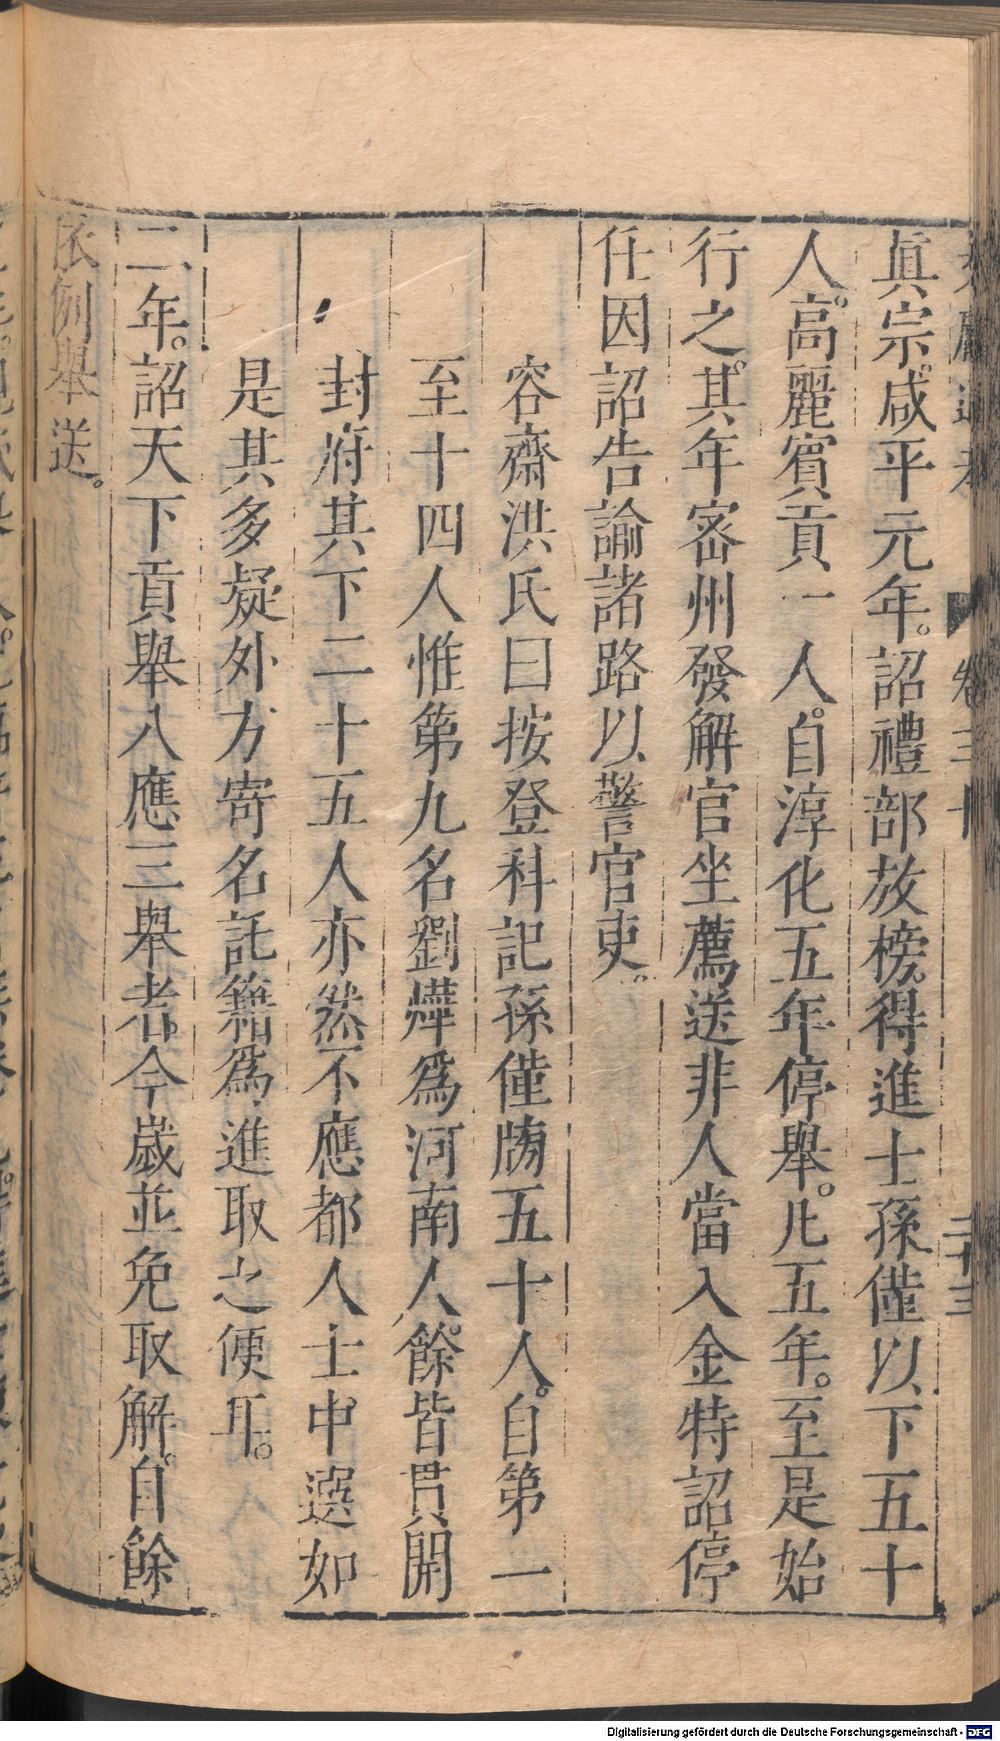 卷三十
二十三
眞宗咸平元年。詔禮部放榜。得進士孫僅以下五十
人。高麗賓貢一人。自淳化五年停舉。凡五年。至是始
行之。其年密州發解官坐薦送非人當入金特詔停
任因詔告諭諸路以警官吏。
容齋洪氏曰按登科記孫僅牓五十人。自第一
至十四人惟第九名劉燁爲河南人。餘皆貫開
封府其下二十五人亦然不應都人士中選如
是其多疑外方寄名託籍爲進取之便耳。
二年。詔天下貢舉人應三舉者。今歲並免取解。自餘
依例舉送。
Digitalisierung gefördert durch die Deutsche Forschungsgemeinschaft - DFG